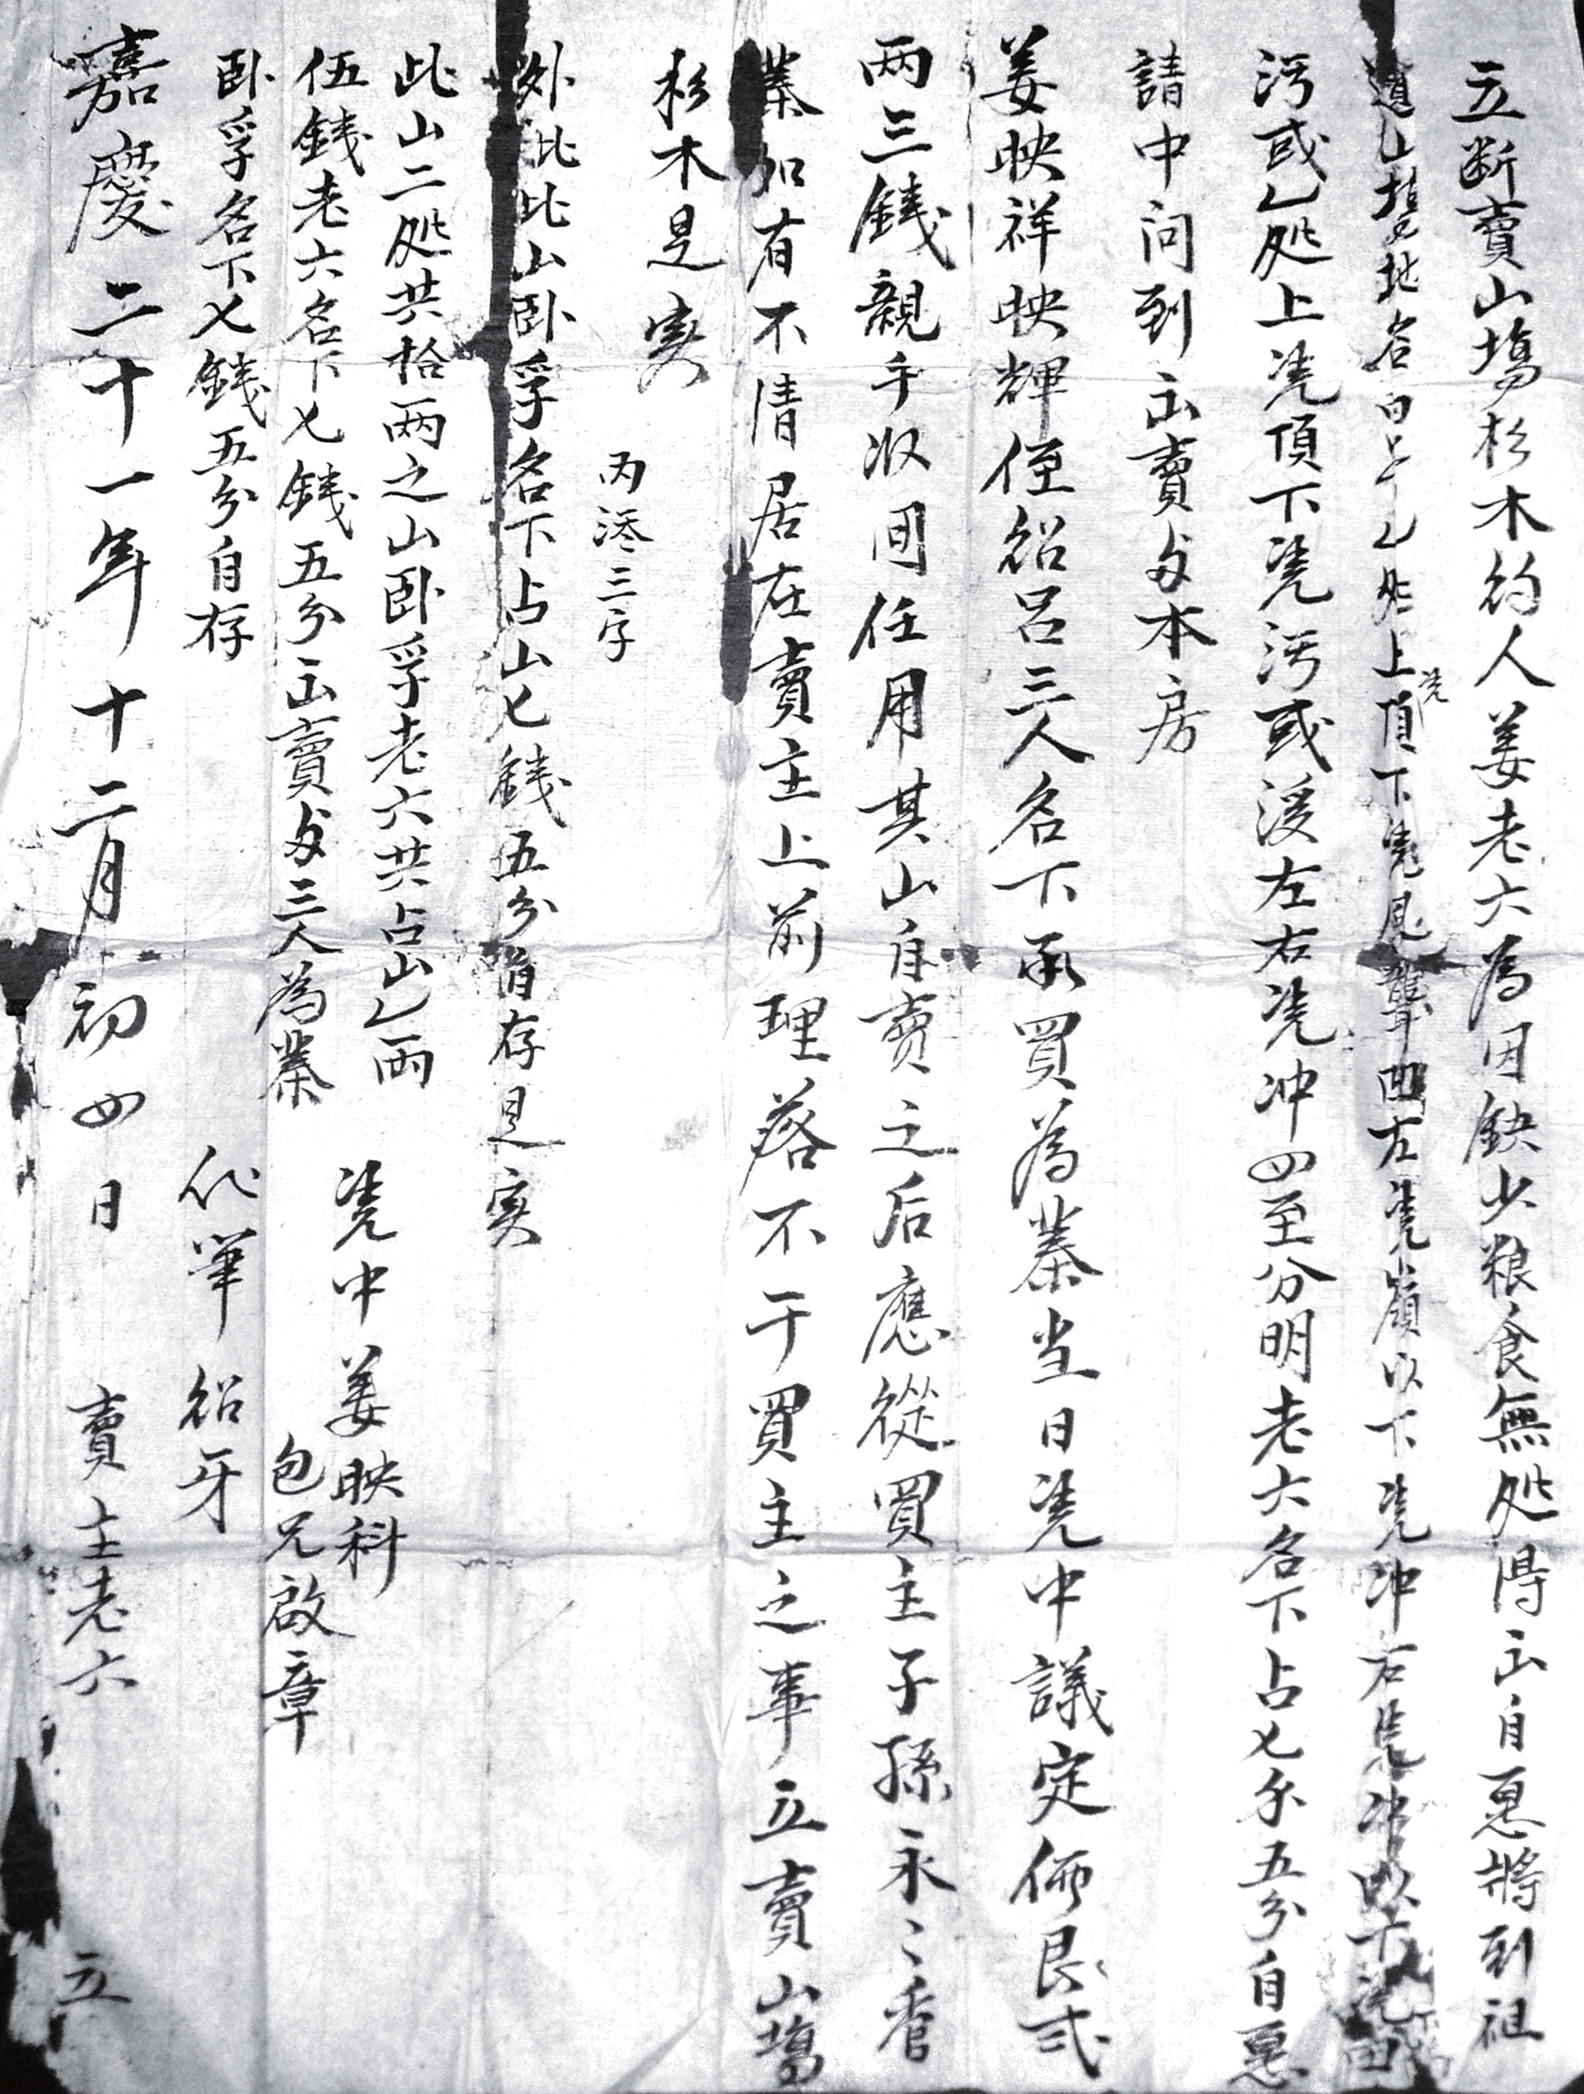 立断賣山塲杉木約人姜老六為因缺少粮食無処得出自愿將到祖
遺山塲地名白号乙処上凴頂下凴見龍凹左凴嶺以下凴冲右凴冲以下凴田
污或乙処上凴頂下凴污或溪左右凴冲四至分明老六名下占七分五分自愿
請中问到出賣與本房
姜映祥映輝侄紹吕三人名下承買為業当日凴中議定価艮弍
两三錢親手収囬任用其山自賣之后應從買主子孫永〻管
業如有不清居在賣主上前理落不干買主之事立賣山塲
杉木是实
内添三字
外批此山卧孚名下占山七錢五分自存是实
此山二処共拾两之山卧孚老六共占山乙两
伍錢老六名下七錢五分出賣與三人為業
卧孚名下七錢五分自存
凴中姜映科
包兄啟章
代筆紹牙
嘉慶二十一年十二月初四日賣主老六立